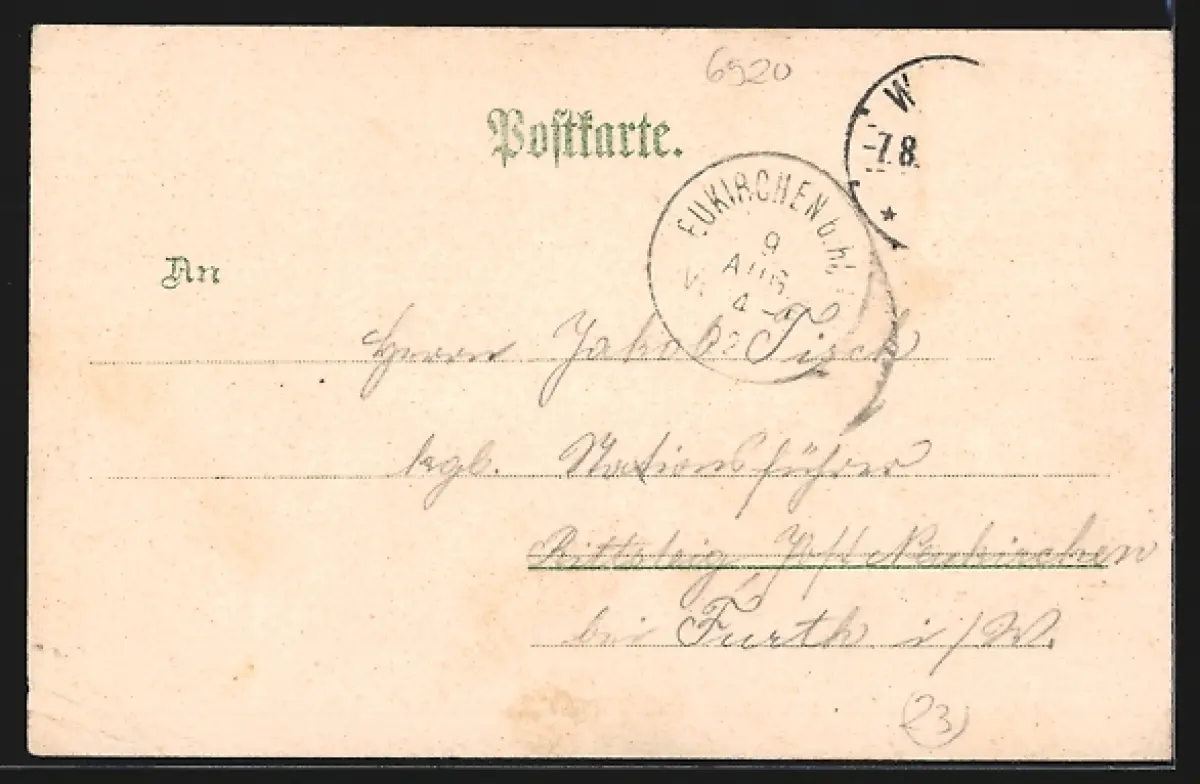 6920
Postkarte.
W
-7.8.
EUKIRCHEN b. hl
9
AUG
V. 4-
02
An
Herrn Jakob Tisch
kgl. Stationsführer
Rittsteig, Post Neukirchen
bei Furth i/W.
23